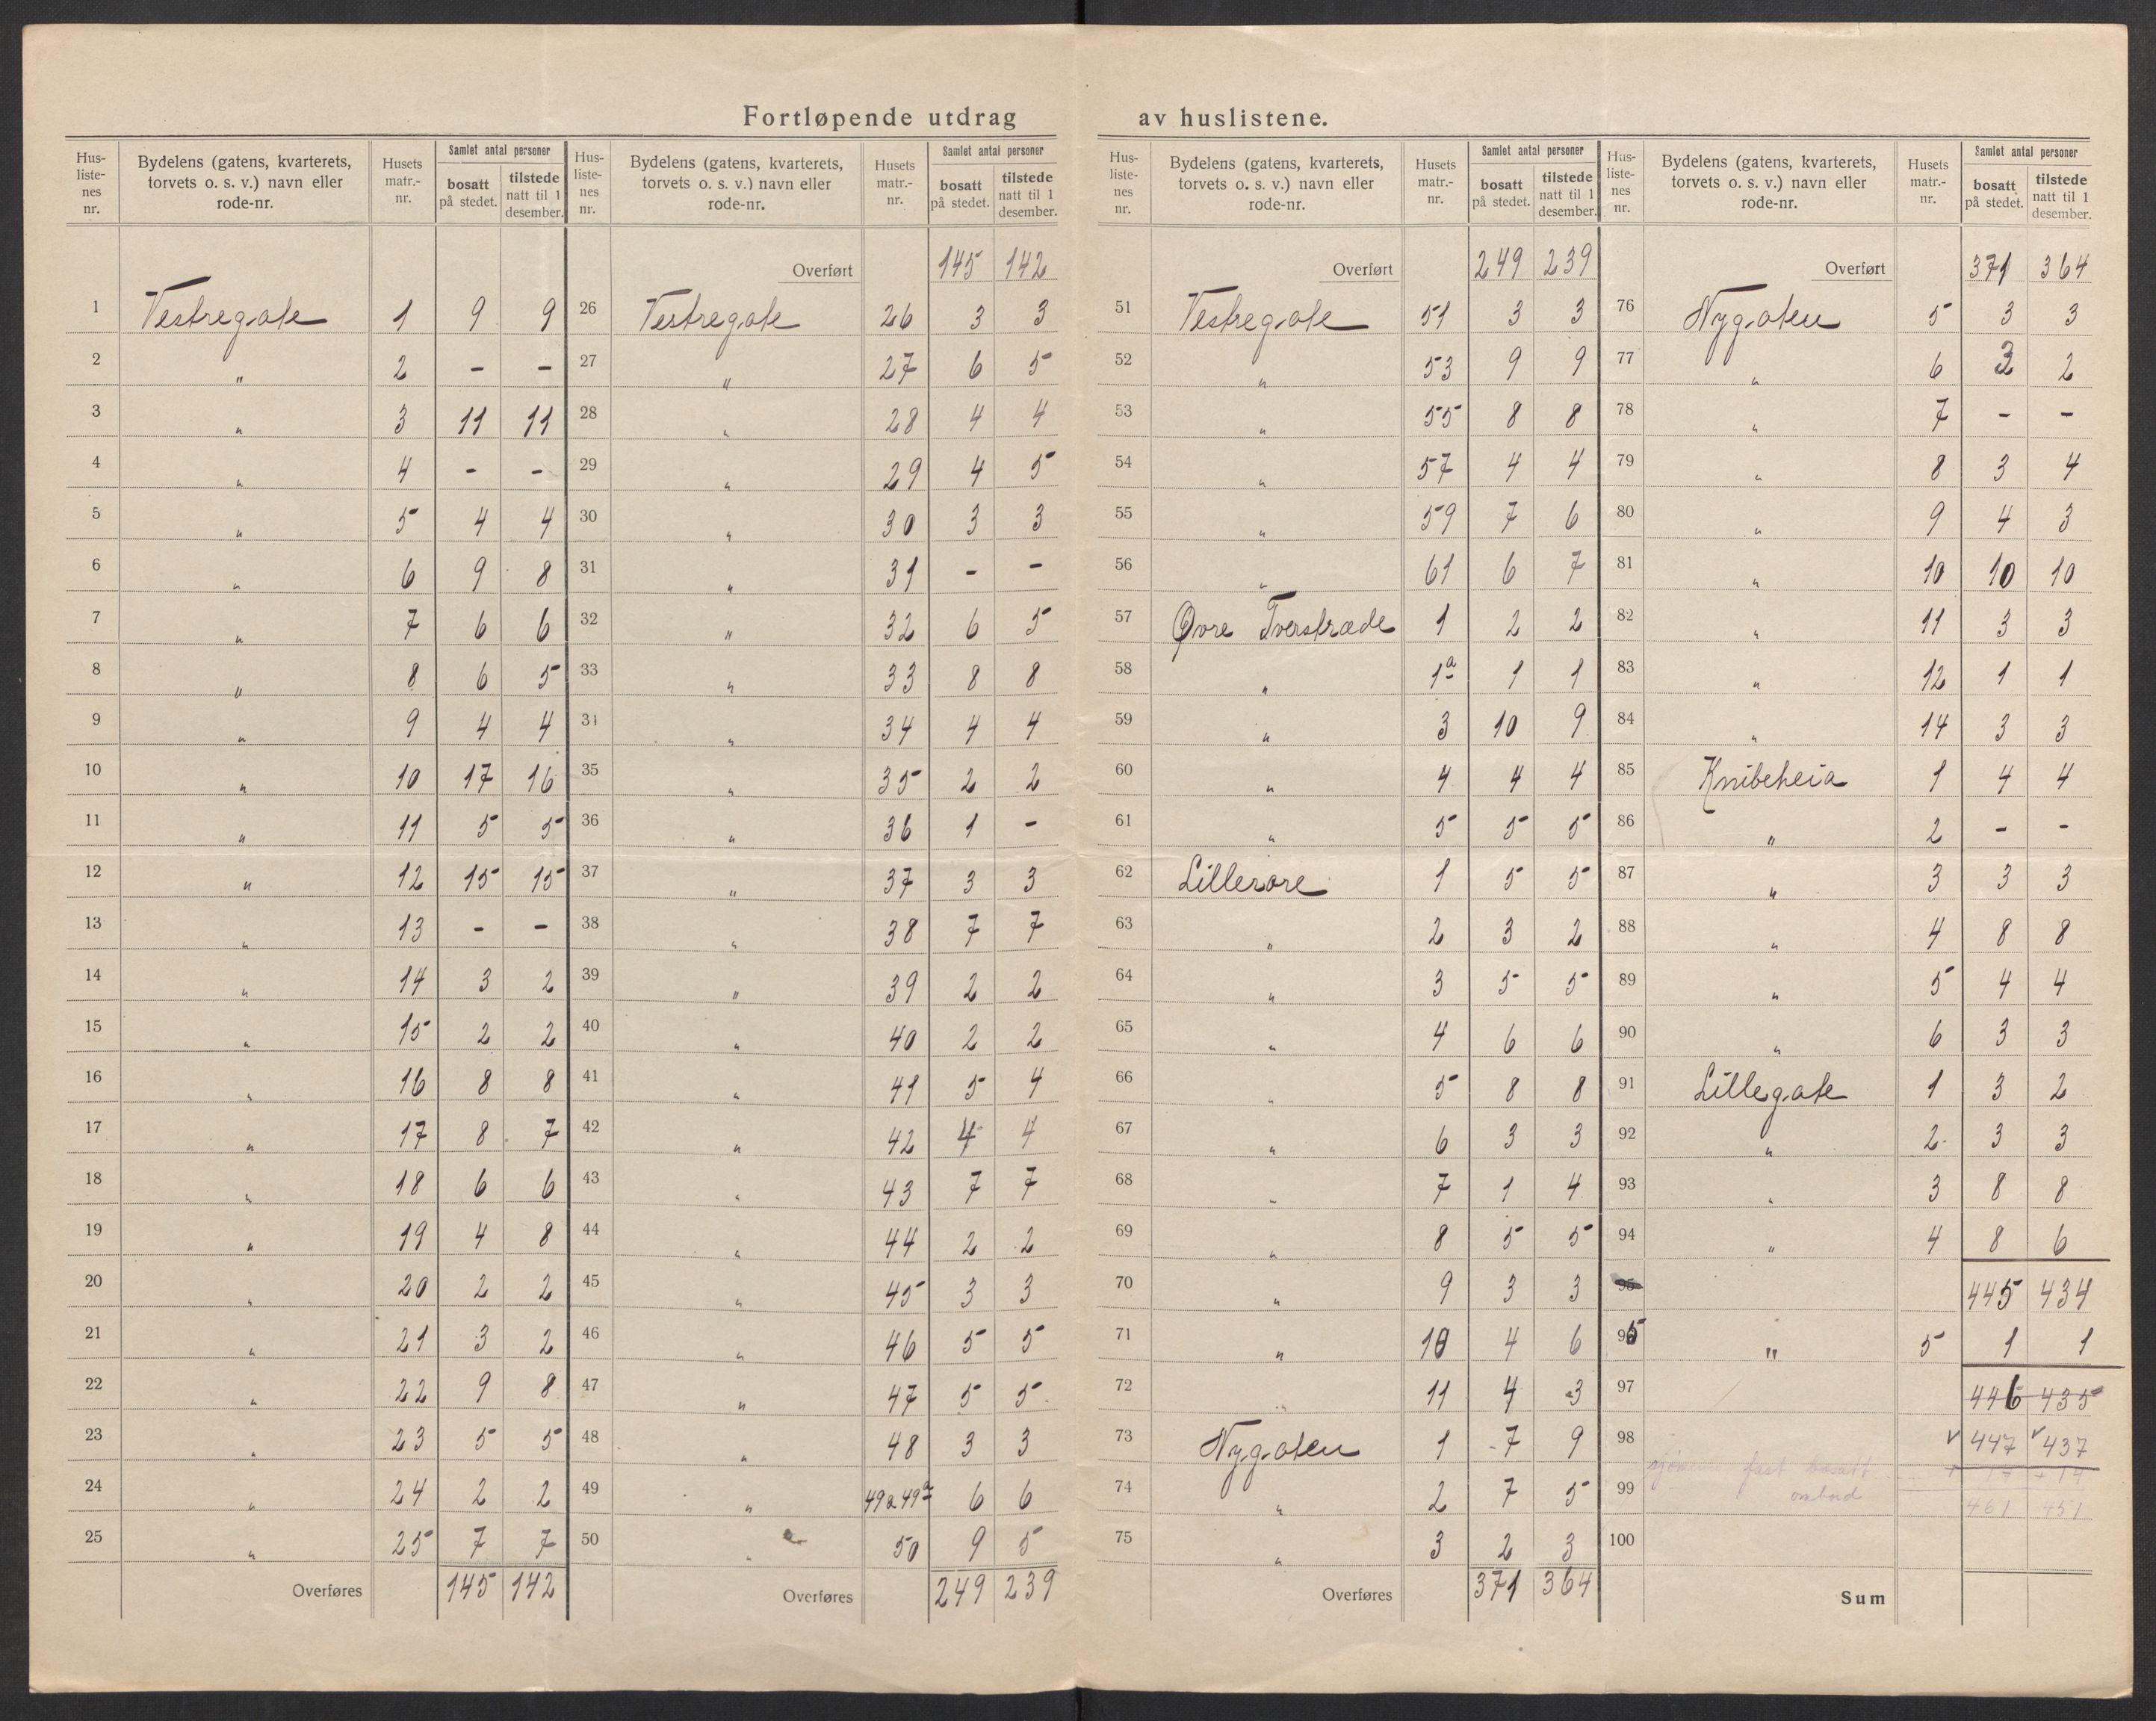 Fortløpende utdrag av huslistene.
Hus-listenes nr. | Bydelens (gatens, kvarterets, torvets o. s. v.) navn eller rode-nr. | Husets matr.-nr. | Samlet antal personer bosatt på stedet. | tilstede natt til 1 desember.
1 Vestregate 1 9 9
2 " 2 - -
3 " 3 11 11
4 " 4 - -
5 " 5 4 4
6 " 6 9 8
7 " 7 6 6
8 " 8 6 5
9 " 9 4 4
10 " 10 17 16
11 " 11 5 5
12 " 12 15 15
13 " 13 - -
14 " 14 3 2
15 " 15 2 2
16 " 16 8 8
17 " 17 8 7
18 " 18 6 6
19 " 19 4 8
20 " 20 2 2
21 " 21 3 2
22 " 22 9 8
23 " 23 5 5
24 " 24 2 2
25 " 25 7 7
Overføres 145 142
Hus-listenes nr. | Bydelens (gatens, kvarterets, torvets o. s. v.) navn eller rode-nr. | Husets matr.-nr. | Samlet antal personer bosatt på stedet. | tilstede natt til 1 desember.
Overført 145 142
26 Vestregate 26 3 3
27 " 27 6 5
28 " 28 4 4
29 " 29 4 5
30 " 30 3 3
31 " 31 - -
32 " 32 6 5
33 " 33 8 8
34 " 34 4 4
35 " 35 2 2
36 " 36 1 -
37 " 37 3 3
38 " 38 7 7
39 " 39 2 2
40 " 40 2 2
41 " 41 5 4
42 " 42 4 4
43 " 43 7 7
44 " 44 2 2
45 " 45 3 3
46 " 46 5 5
47 " 47 5 5
48 " 48 3 3
49 " 49 a 49 a 6 6
50 " 50 9 5
Overføres 249 239
Hus-listenes nr. | Bydelens (gatens, kvarterets, torvets o. s. v.) navn eller rode-nr. | Husets matr.-nr. | Samlet antal personer bosatt på stedet. | tilstede natt til 1 desember.
Overført 249 239
51 Vestregate 51 3 3
52 " 53 9 9
53 " 55 8 8
54 " 57 4 4
55 " 59 7 6
56 " 61 6 7
57 Øvre Tverstræde 1 2 2
58 " 1a 1 1
59 " 3 10 9
60 " 4 4 4
61 " 5 5 5
62 Lilletore 1 5 5
63 " 2 3 2
64 " 3 5 5
65 " 4 6 6
66 " 5 8 8
67 " 6 3 3
68 " 7 1 4
69 " 8 5 5
70 " 9 3 3
71 " 10 4 6
72 " 11 4 3
73 Nygaten 1 7 9
74 " 2 7 5
75 " 3 2 3
Overføres 371 364
Hus-listenes nr. | Bydelens (gatens, kvarterets, torvets o. s. v.) navn eller rode-nr. | Husets matr.-nr. | Samlet antal personer bosatt på stedet. | tilstede natt til 1 desember.
Overført 371 364
76 Nygaten 5 3 3
77 " 6 3 2
78 " 7 - -
79 " 8 3 4
80 " 9 4 3
81 " 10 10 10
82 " 11 3 3
83 " 12 1 1
84 " 14 3 3
85 Knibeheia 1 4 4
86 " 2 - -
87 " 3 3 3
88 " 4 8 8
89 " 5 4 4
90 " 6 3 3
91 Lillegate 1 3 2
92 " 2 3 3
93 " 3 8 8
94 " 4 8 6
95 445 434
95 " 5 1 1
97 446 435
98 447 437
fast bosatt
99 ombord 461 451
100
Sum